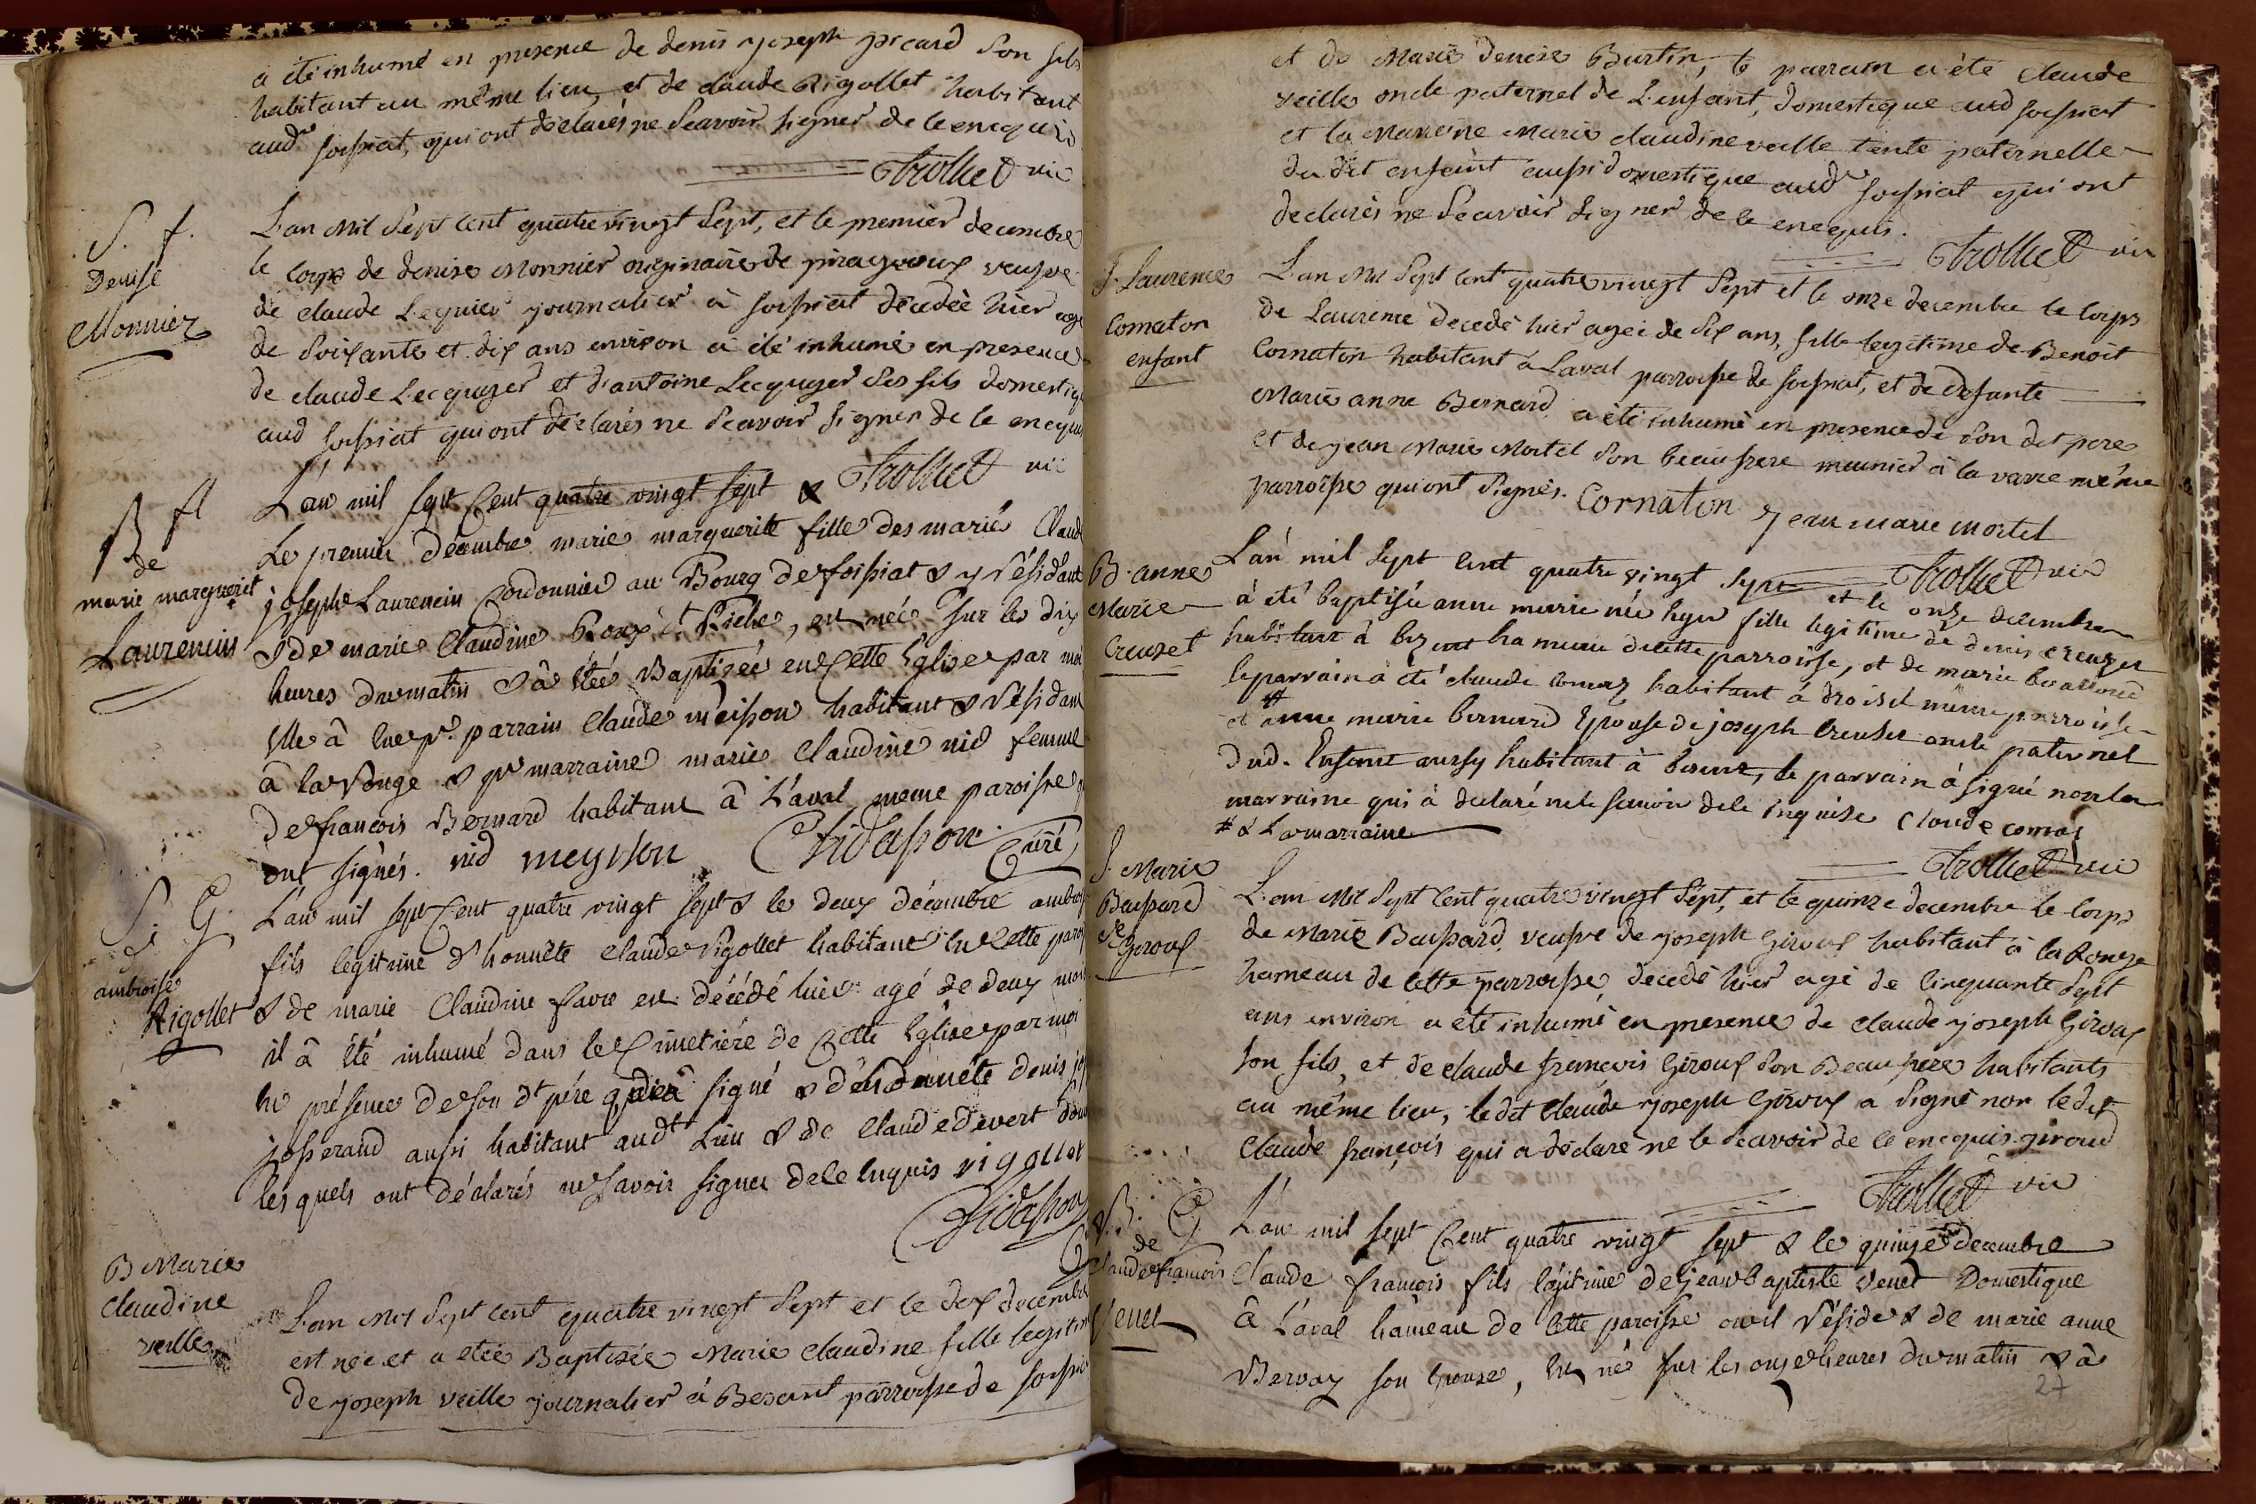 a été inhumé en presence de denis joseph picard son fils
habitant au même lieu, et de claude Rigollet habitant
aud. foissiat, qui ont déclarés ne Scavoir signer de ce enequis
Trolliet vic
S. f.
Denise
Monnier
L'an Mil Sept cent quatre vingt Sept, et le premier decembre
le corps de denise Monnier originaire de veufve
de claude Lequier journalier à foissiat décédée hier agé
de Soixante et dix ans environ a été inhumé en presence
de claude Lecquyer et d'antoine Lecquyer Ses fils domestiq
aud foissiat qui ont déclarés ne Scavoir signer de ce enequis
Trolliet vic
B fl
de
marie marguerit
Laurencin
L'an mil sept Cent quatre vingt sept &
Le premier décembre marie marguerite fille des mariés Claud
joseph Laurencin Cordonnier au Bourg de foissiat & y Résidant
& de marie Claudine Roux et Riche, est née sur les dix
heures du matin & â été Baptizée en Cette Eglise par moi
Elle â eue pr. parrain Claude meisson habitant & Résidant
â la Ronge & pr marraine marie Claudine nid femme
de françois Bernard habitant â L'aval meme paroisse q
ont signés. nid meysson Chidasson Curé
S. G.
ambroise
Rigollet
L'an mil sept Cent quatre vingt sept & le deux décembre ambroi
fils legitime d'honnête Claude Rigollet habitant en Cette paroi
& de marie Claudine favre est décédé hier agé de deux mois
il â été inhumé dans le Cimetiére de Cette Eglise par moi
en présence de son dt pére qui a signé & d'honnête denis jos
josserand aussi habitant audt Lieu & de Claude devert dom
les quels ont déclarés ne savoir signer de ce Enquis rigollet
Chidasson
B Marie
Claudine
veille
L'an Mil Sept cent quatre vingt Sept et le dix décembre
est née et a étée Baptisée Marie Claudine fille legitim
de joseph veille journalier à Besant parroisse de foissi
et de Marie denise Burtin, le parrain a été claude
veille oncle paternel de L'enfant, domestique aud foissiat
et la Mareine Marie claudine veille tente paternelle
du dit enfent aussi domestique aud. foissiat qui ont
declarés ne Scavoir signer de ce enequis.
Trolliet vic
S. Laurence
Cornaton
enfant
L'an Mil Sept cent quatre vingt Sept et le onze decembre le corps
de Laurence decedé hier agée de Six ans, fille legitime de Benoit
Cornaton habitant à Laval parroisse de foissiat, et de defunte
Marie anne Bernard a été inhumé en presence de Son dit pere
et de jean Marie Mortel Son beaufrere meunier à la vavre même
parroisse qui ont Signés. Cornaton jean marie mortel
Trolliet vic
B. anne
Marie
Creuzet
L'an mil sept cent quatre vingt sept et le onze décembre
à été baptisée anne marie née hyer fille legitime de denis creuzet
habitant à bezent hameau de cette parroisse, et de marie
le parrain à été claude comaz habitant à même parroisse
et # anne marie bernard Epouse de joseph Creuset oncle paternel
dud. Enfant aussy habitant à besent, le parrain à signé non la
marraine qui à declaré ne le scavoir de ce inquise Claude comas
# & La marraine
Trolliet vic
S. Marie
Bassard
ve
Giroux
L'an Mil Sept Cent quatre vingt Sept, et le quinze decembre le corps
de Marie Bassard, veufve de joseph Giroux habitant à la Ronge
hameau de cette parroisse, decedé hier agé de Cinquante Sept
ans environ a été inhumé en presence de claude joseph Giroux
son fils, et de claude françois Giroux Son Beaufrere habitants
au même lieu, ledit Claude joseph Giroux a Signé non ledit
Claude françois qui a déclaré ne le scavoir de ce enequis giroud
Trolliet vic
B. G
de
Claude françois
Venet
L'an mil sept Cent quatre vingt sept & le quinze decembre
Claude françois fils légitime de jean baptiste Venet Domestique
â L'aval hameau de Cette paroisse ou il Réside & de marie anne
Bervay son Epouse, est né sur les onze heures du matin & â
27